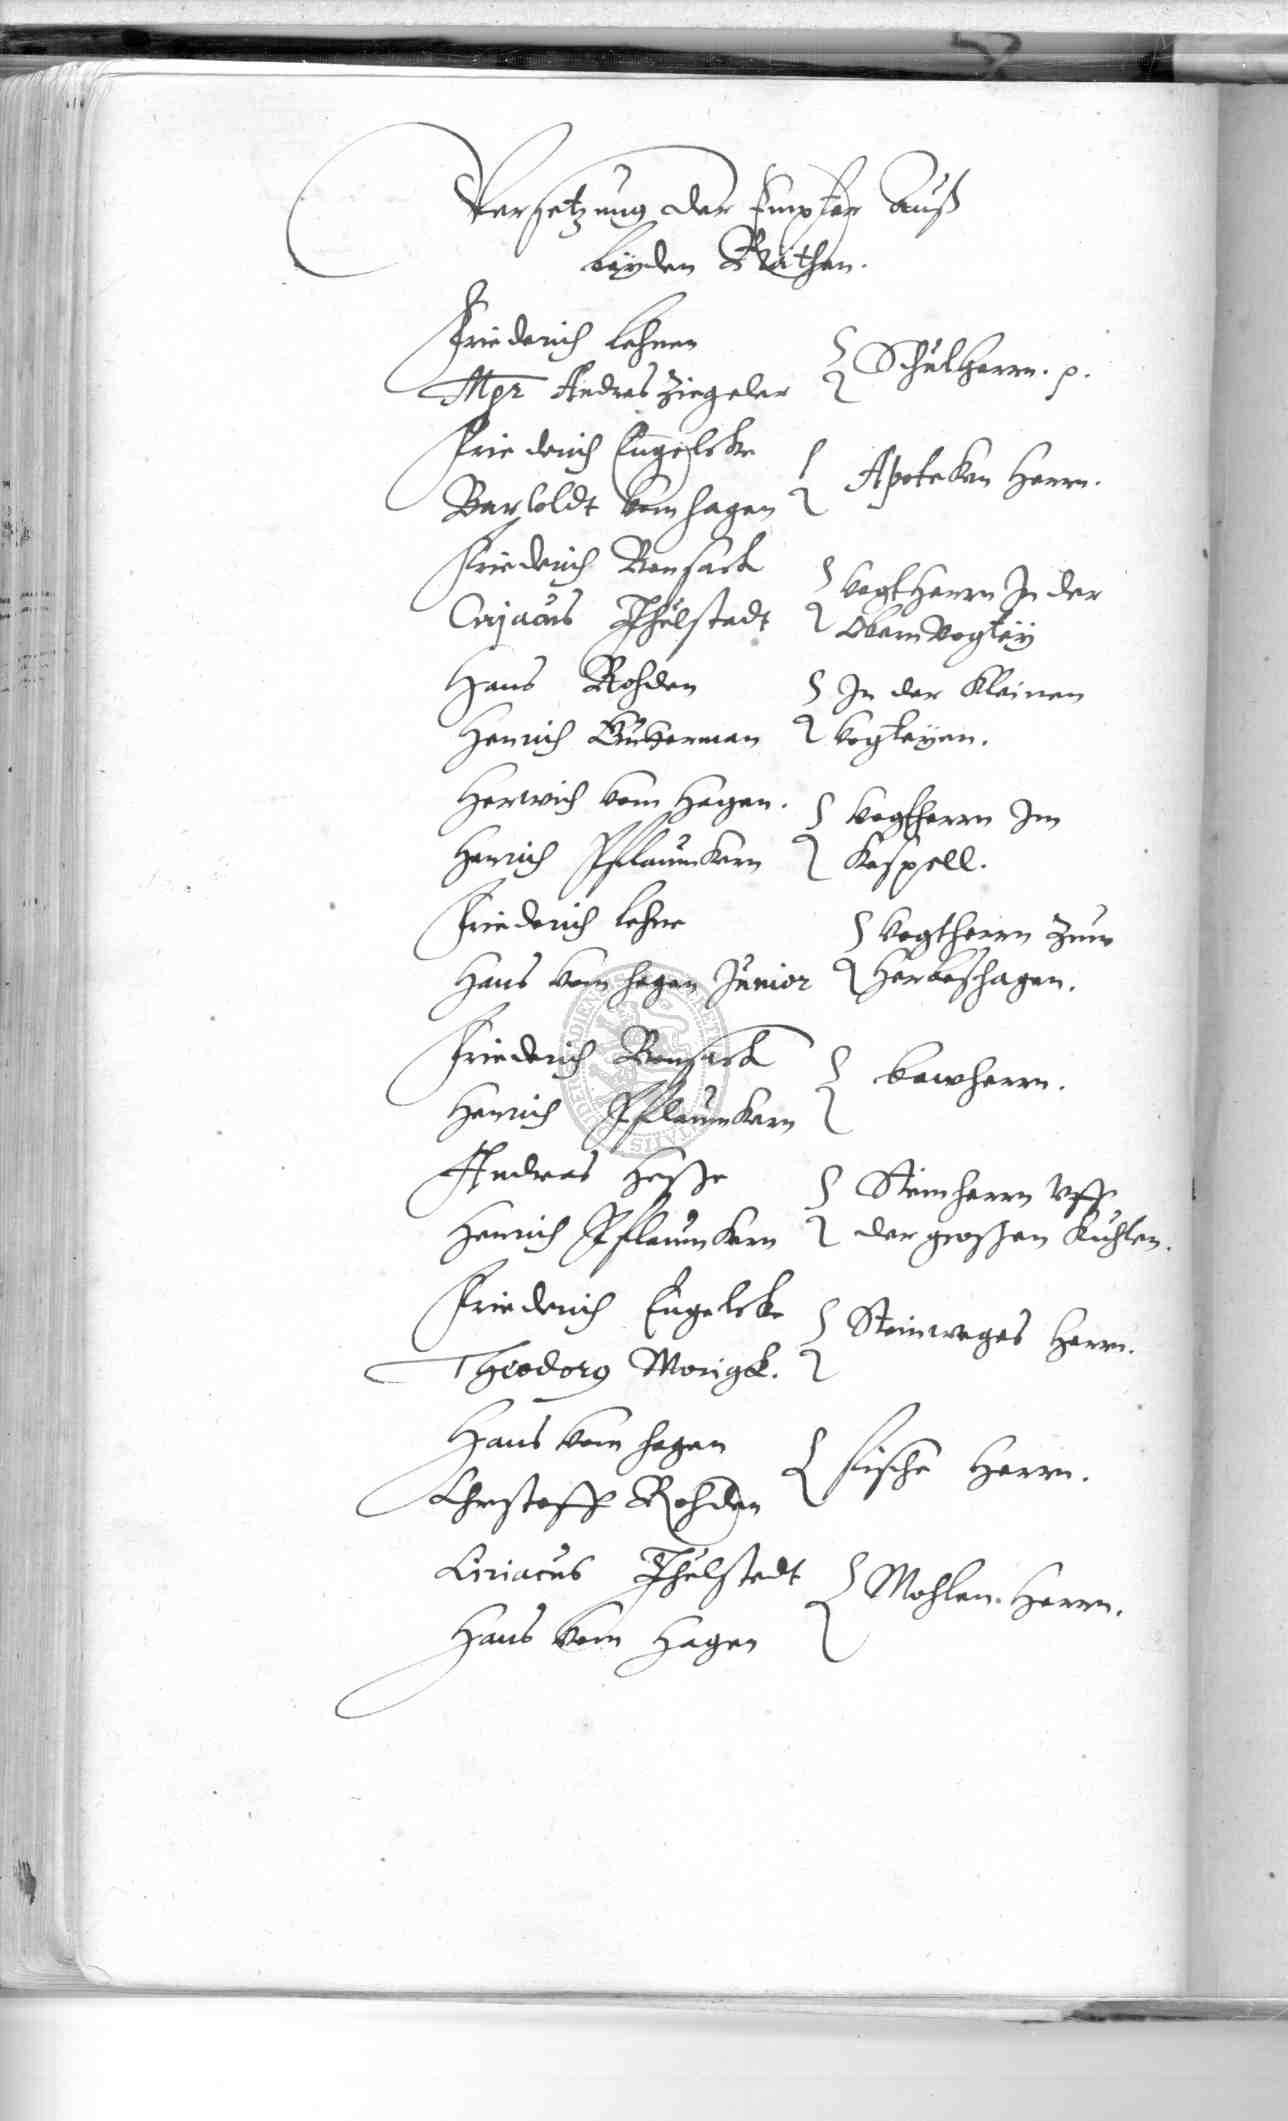 Versetzung der Empter auß
beÿden Räthen.
Friederich Lehnen
Mgr Andres Ziegeler
Schulherrn. p.
Friederich Engelcke
Bartoldt vom hagen
Apoteken Herrn.
Friederich Bonsack
Cirjacus Thülstadt
Vogtherrn In der
Obern Vogteÿ
Hans Rohden
Henrich
In der Kleinen
Vogteyen.
Herwich vom Hagen.
Henrich Pflaumkern
Vogtherrn Im
Kaspell.
Friederich Lehne
Hans vom hagen Junior
Vogtherrn Zum
Herbeshagen.
Friederich Bonsack
Henrich Pflaumkern
bawherrn.
Andres Hesse
Henrich Pflaumkern
Steinherrn Uff
der grossen Kuhlen.
Friederich Engelcke
Theodorg Morigk.
Steinweges Herrn.
Hans vom hagen
Christoff Rohden
fische Herrn.
Ciriacus Thülstedt
Hans vom Hagen
Mohlen. Herrn.